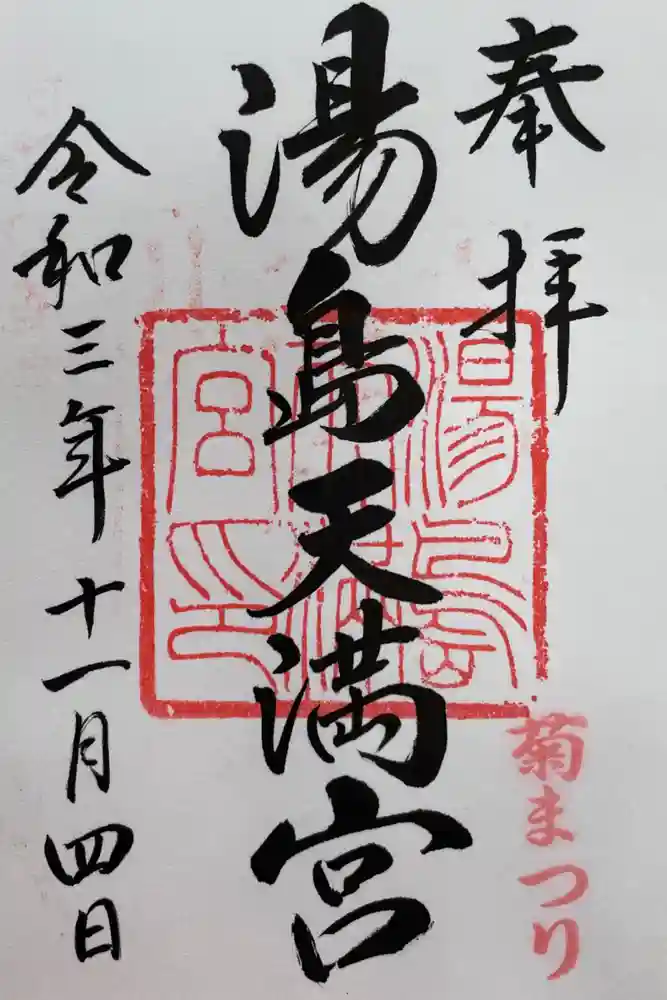 奉拝
菊まつり
湯島天満宮
湯島天満宮印
令和三年十一月四日